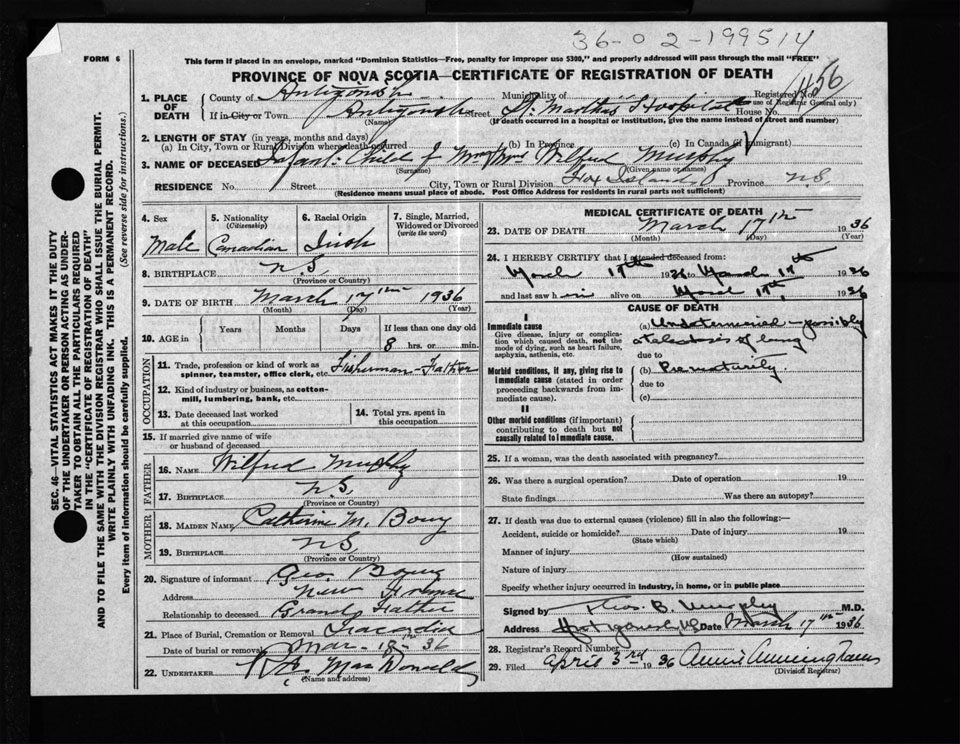 36-02-199514
FORM 6
This form if placed in an envelope, marked "Dominion Statistics—Free, penalty for improper use $300," and properly addressed will pass through the mail "FREE"
PROVINCE OF NOVA SCOTIA—CERTIFICATE OF REGISTRATION OF DEATH
1. PLACE OF DEATH
County of Antigonish Municipality of Registered No. 456
(For use of Registrar General only)
If in City or Town Antigonish Street St. Martha's Hospital House No.
(Name) (If death occurred in a hospital or institution, give the name instead of street and number)
2. LENGTH OF STAY (in years, months and days)
(a) In City, Town or Rural Division where death occurred (b) In Province (c) In Canada (if immigrant)
3. NAME OF DECEASED Infant Child of Mr & Mrs Wilfred Murphy
(Surname) (Given name or names)
RESIDENCE No. Street City, Town or Rural Division Fox Island Province N.S.
(Residence means usual place of abode. Post Office Address for residents in rural parts not sufficient)
4. Sex
Male
5. Nationality
(Citizenship)
Canadian
6. Racial Origin
Irish
7. Single, Married, Widowed or Divorced
(write the word)
8. BIRTHPLACE N.S.
(Province or Country)
9. DATE OF BIRTH March 17th 1936
(Month) (Day) (Year)
10. AGE in Years Months Days If less than one day old
8 hrs. or min.
OCCUPATION
11. Trade, profession or kind of work as spinner, teamster, office clerk, etc. Fisherman - Father
12. Kind of industry or business, as cotton-mill, lumbering, bank, etc.
13. Date deceased last worked at this occupation
14. Total yrs. spent in this occupation
15. If married give name of wife or husband of deceased
FATHER
16. NAME Wilfred Murphy
17. BIRTHPLACE N.S.
(Province or Country)
MOTHER
18. MAIDEN NAME Catherine M.
19. BIRTHPLACE N.S.
(Province or Country)
20. Signature of informant Geo.
Address New Harbour
Relationship to deceased Grand Father
21. Place of Burial, Cremation or Removal Tracadie
Date of burial or removal Mar - 18th - 36
22. UNDERTAKER MacDonald
(Name and address)
MEDICAL CERTIFICATE OF DEATH
23. DATE OF DEATH March 17th 1936
(Month) (Day) (Year)
24. I HEREBY CERTIFY that I attended deceased from:
March 17th 1936 to March 17th 1936
and last saw him alive on March 17th 1936
CAUSE OF DEATH
I
Immediate cause
Give disease, injury or complication which caused death, not the mode of dying, such as heart failure, asphyxia, asthenia, etc.
(a) Undetermined - possibly
atelectasis of lung
due to
Morbid conditions, if any, giving rise to immediate cause (stated in order proceeding backwards from immediate cause).
(b) Prematurity.
due to
(c)
II
Other morbid conditions (if important) contributing to death but not causally related to immediate cause.
25. If a woman, was the death associated with pregnancy?
26. Was there a surgical operation? Date of operation 19
State findings Was there an autopsy?
27. If death was due to external causes (violence) fill in also the following:—
Accident, suicide or homicide? Date of injury 19
(State which)
Manner of injury
(How sustained)
Nature of injury
Specify whether injury occurred in industry, in home, or in public place
Signed by Thos. B. Murphy M.D.
Address Antigonish, N.S. Date March 17th 1936
28. Registrar's Record Number
29. Filed April 3rd 1936 Annie Cunningham
(Division Registrar)
SEC. 46—VITAL STATISTICS ACT MAKES IT THE DUTY
OF THE UNDERTAKER OR PERSON ACTING AS UNDER-
TAKER TO OBTAIN ALL THE PARTICULARS REQUIRED
IN THE "CERTIFICATE OF REGISTRATION OF DEATH"
AND TO FILE THE SAME WITH THE DIVISION REGISTRAR WHO SHALL ISSUE THE BURIAL PERMIT.
WRITE PLAINLY WITH UNFADING INK. THIS IS A PERMANENT RECORD.
Every item of information should be carefully supplied. (See reverse side for instructions.)